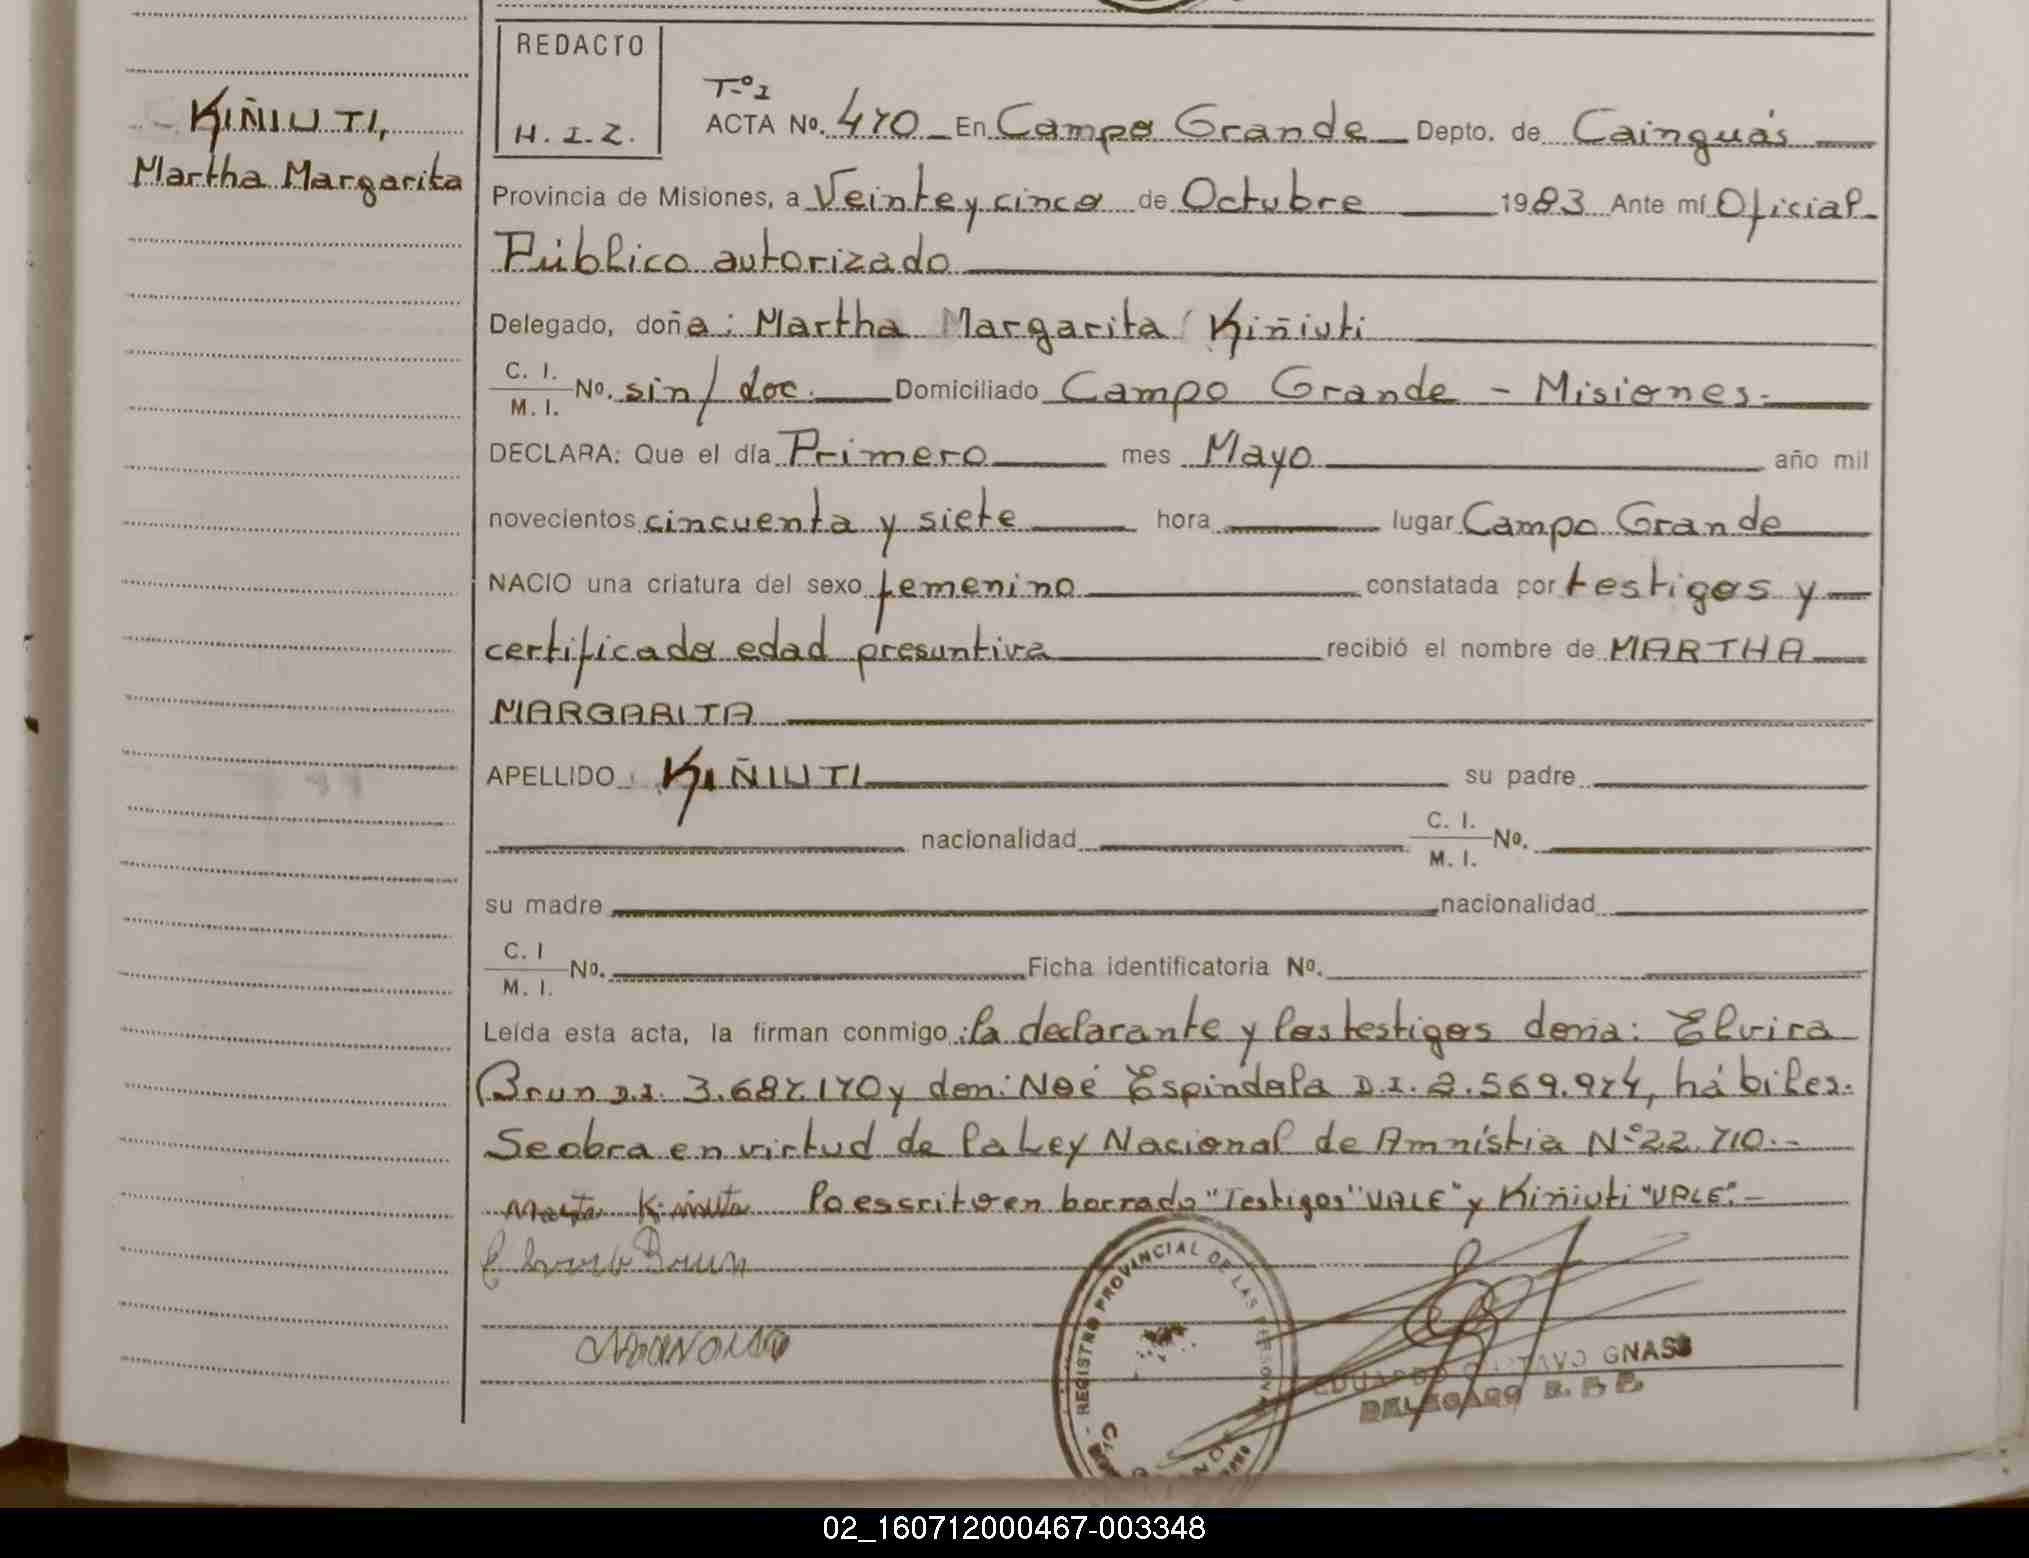 REDACTO
H. I. Z.
KIÑIUTI,
Martha Margarita
T-º1
ACTA Nº. 470 En Campo Grande Depto. de Cainguás
Provincia de Misiones, a Veinte y cinco de Octubre 1983 Ante mí Oficial
Público autorizado
Delegado, doña: Martha Margarita Kiñiuti
C. I.
M. I. Nº. sin/doc. Domiciliado Campo Grande - Misiones.
DECLARA: Que el día Primero mes Mayo año mil
novecientos cincuenta y siete hora lugar Campo Grande
NACIO una criatura del sexo femenino constatada por testigos y
certificado edad presuntiva recibió el nombre de MARTHA
MARGARITA
APELLIDO KIÑIUTI su padre
nacionalidad C. I.
M. I. Nº.
su madre nacionalidad
C. I
M. I. Nº. Ficha identificatoria Nº.
Leída esta acta, la firman conmigo: la declarante y los testigos doña: Elvira
Brun D.I. 3.687.170 y don: Noé Espindola D.I. 2.569.974, hábiles.
Se obra en virtud de la Ley Nacional de Amnístia Nº 22.710.-
Marta Lo escrito en borrado "Testigos" "VALE" y Kiñiuti "VALE".-
Brun
REGISTRO PROVINCIAL DE LAS PERSONAS
EDUARDO GUSTAVO GNASS
DELEGADO
02_160712000467-003348